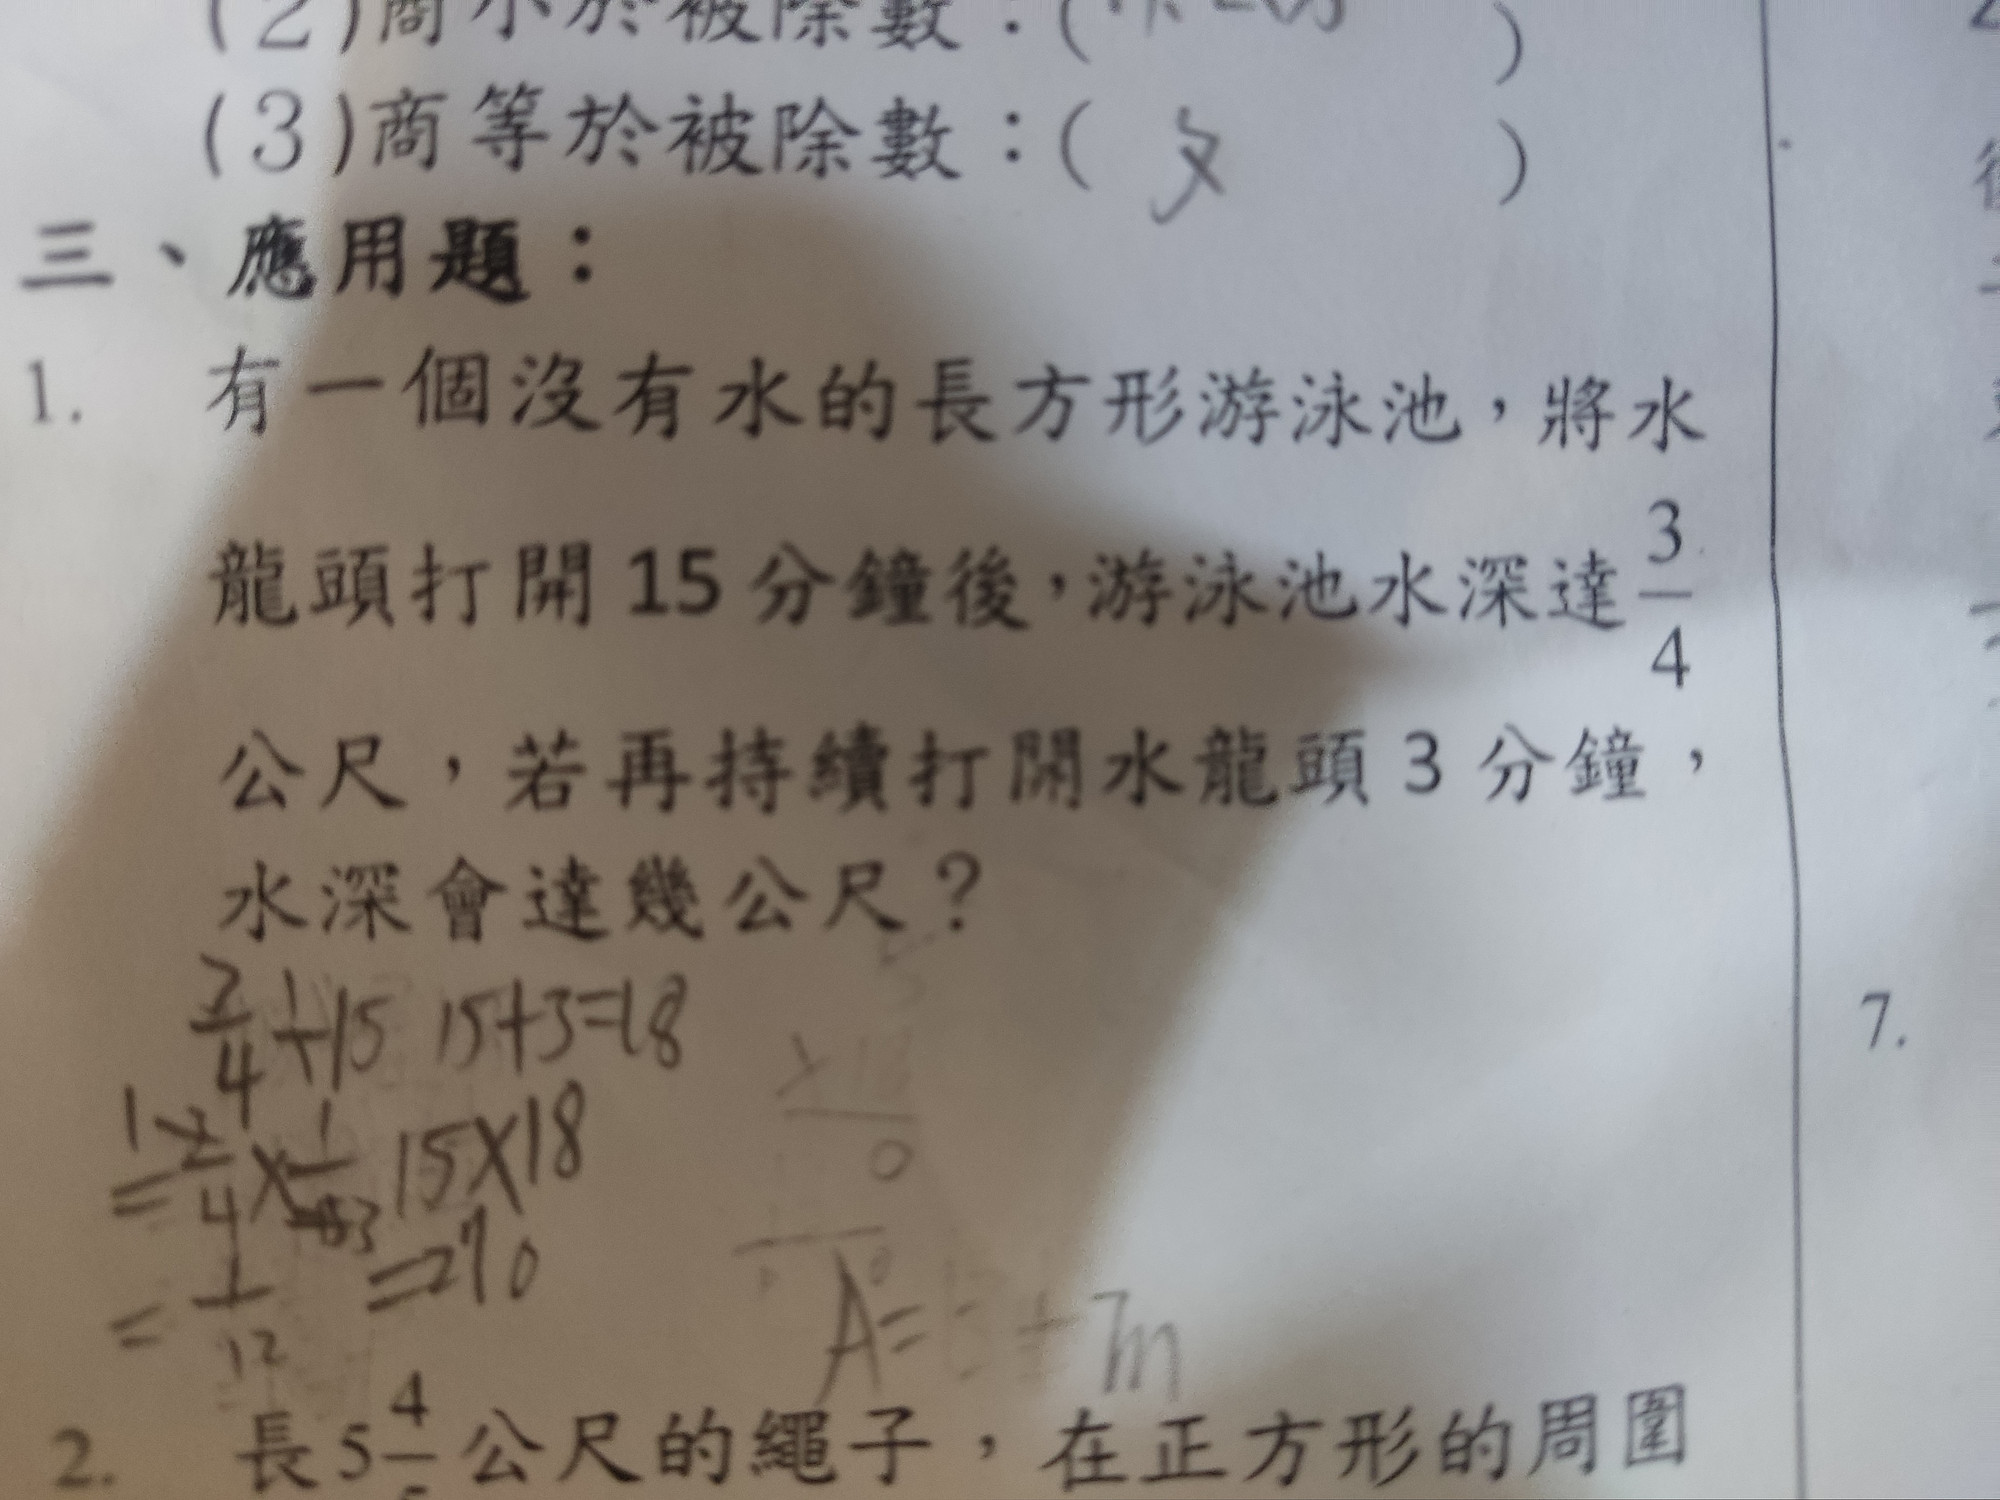 (2)商小於被除數：( )
(3)商等於被除數：( )
三、應用題：
1. 有一個沒有水的長方形游泳池，將水
龍頭打開15分鐘後，游泳池水深達3/4
公尺，若再持續打開水龍頭3分鐘，
水深會達幾公尺？
3/4÷15 15+3=18
15×18
=1/12 =270
A= m
2. 長5 4/5公尺的繩子，在正方形的周圍
7.